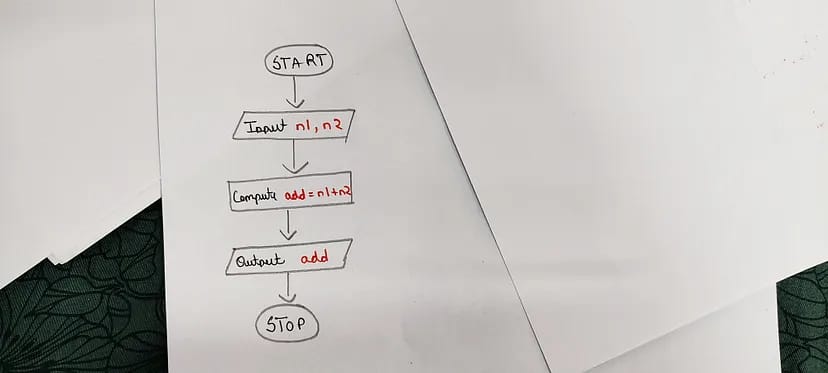 START
Input n1, n2
Compute add=n1+n2
Output add
STOP